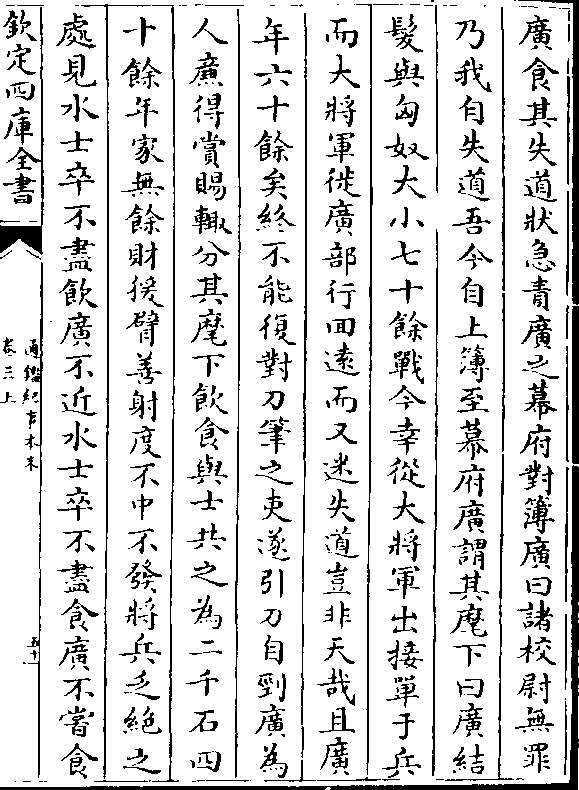 廣食其失道狀急責廣之幕府對簿廣曰諸校尉無罪
乃我自失道吾今自上簿至幕府廣謂其麾下曰廣結
髮與匈奴大小七十餘戰今幸從大將軍出接單于兵
而大將軍徙廣部行回遠而又迷失道豈非天哉且廣
年六十餘矣終不能復對刀筆之吏遂引刀自剄廣為
人廉得賞賜輒分其麾下飲食與士共之為二千石四
十餘年家無餘財猨臂善射度不中不發將兵乏絶之
處見水士卒不盡飲廣不近水士卒不盡食廣不嘗食
欽定四庫全書
通鑑紀事本末
卷三上
五十